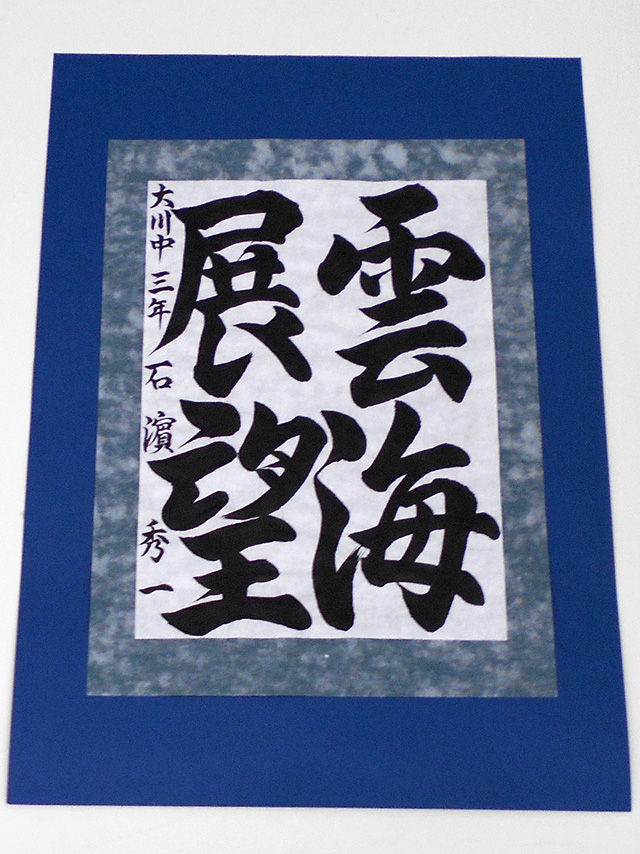 雲海
展望
大川中 三年 石濵秀一